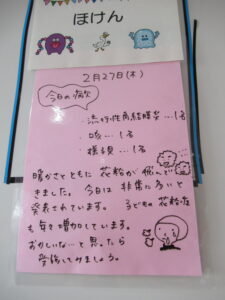 ほけん
2月27日(木)
今日の病欠
・流行性角結膜炎…1名
・咳…1名
・様子見…1名
暖かさとともに花粉が飛んで
きました。今日は非常に多いと
発表されています。子どもの花粉症
も年々増加しています。
おかしいな…と思ったら
受診してみましょう。